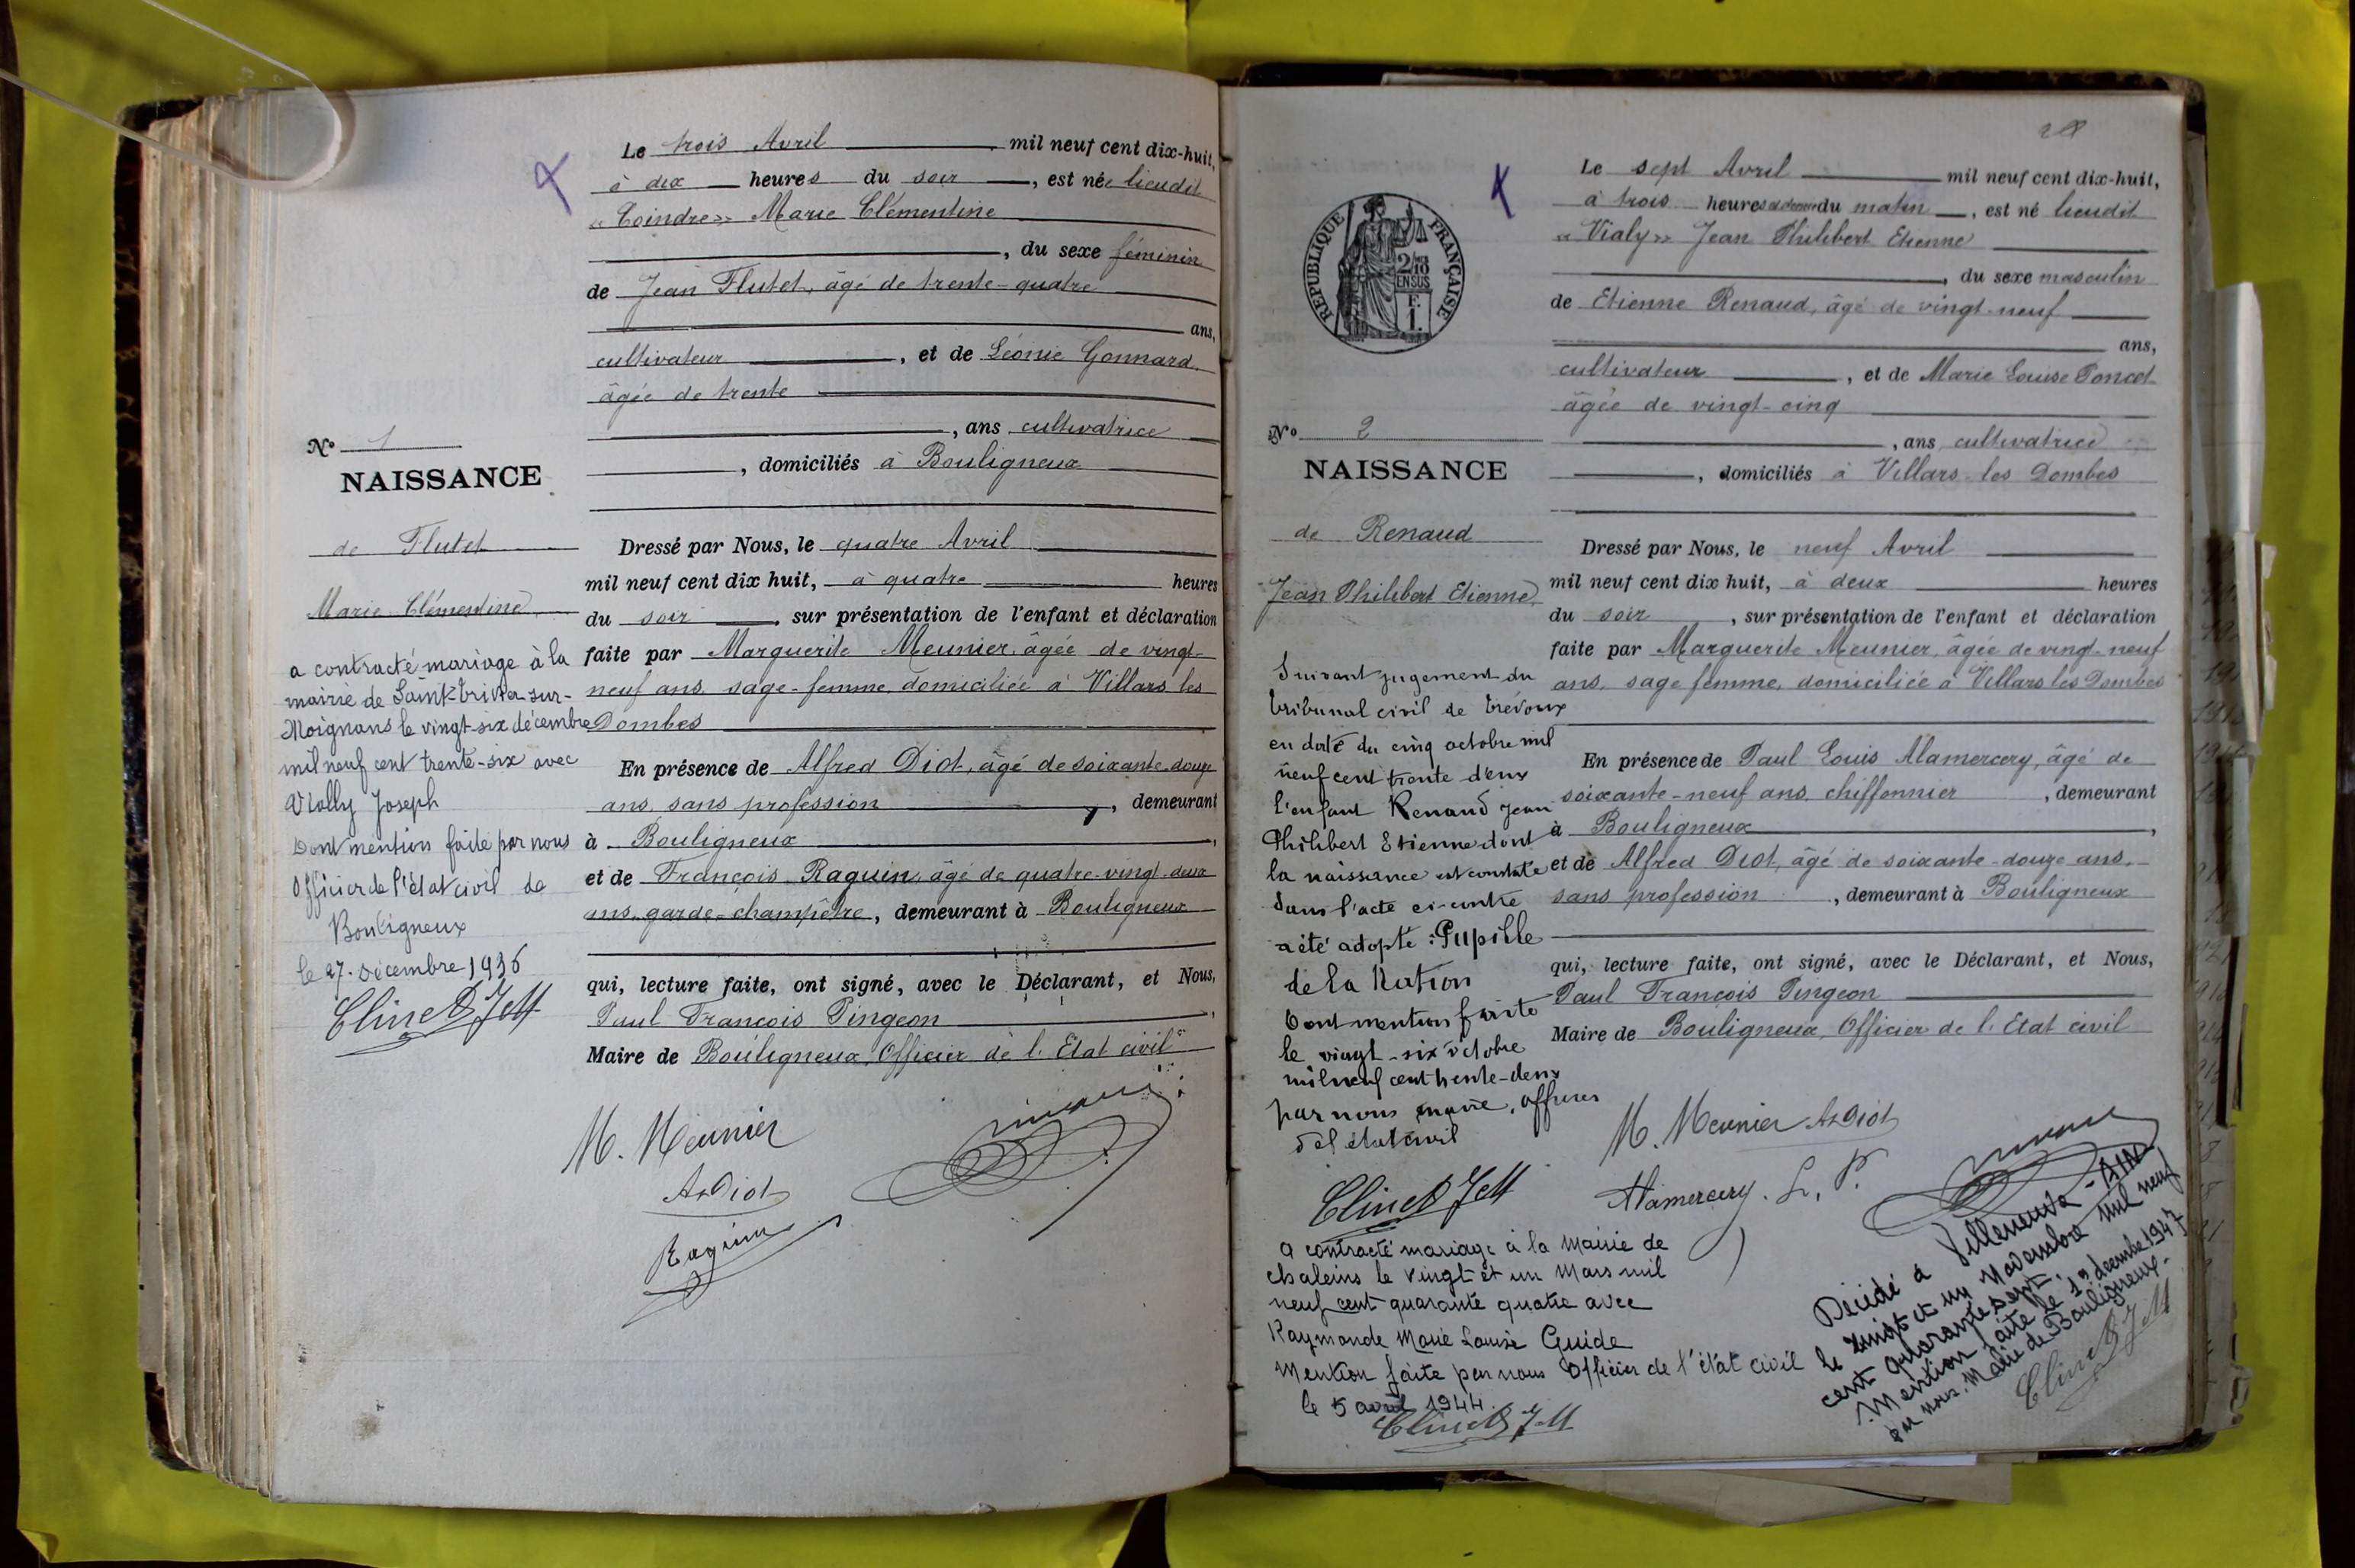 Le trois Avril mil neuf cent dix-huit,
à dix heures du soir, est née lieudit
"Coindre" Marie Clémentine
, du sexe féminin
de Jean Flutet, âgé de trente-quatre
ans,
cultivateur, et de Léonie Gonnard
âgée de trente
, ans cultivatrice
, domiciliés à Bouligneux
No 1
NAISSANCE
de Flutet
Marie Clémentine
Dressé par Nous, le quatre Avril
mil neuf cent dix huit, à quatre heures
du soir, sur présentation de l'enfant et déclaration
faite par Marguerite Meunier, âgée de vingt-
neuf ans, sage-femme, domiciliée à Villars les
Dombes
En présence de Alfred Diot, âgé de soixante-douze
ans, sans profession, demeurant
à Bouligneux,
et de François Raguin, âgé de quatre-vingt-deux
ans, garde-champêtre, demeurant à Bouligneux
qui, lecture faite, ont signé, avec le Déclarant, et Nous,
Paul François Pingeon,
Maire de Bouligneux, Officier de l'Etat civil
a contracté mariage à la
mairie de Saint-Trivier-sur-
Moignans le vingt-six décembre
mil neuf cent trente-six avec
Violly Joseph
Dont mention faite par nous
Officier de l'état civil de
Bouligneux
le 27 décembre 1936
M. Meunier
A. Diot
Raguin
RÉPUBLIQUE FRANÇAISE
2/10
EN SUS
F.
1.
Le sept Avril mil neuf cent dix-huit,
à trois heures et demie du matin, est né lieudit
"Vialy" Jean Philibert Etienne
, du sexe masculin
de Etienne Renaud, âgé de vingt-neuf
ans,
cultivateur, et de Marie Louise Poncet
âgée de vingt-cinq
, ans, cultivatrice
, domiciliés à Villars-les Dombes
No 2
NAISSANCE
de Renaud
Jean Philibert Etienne
Dressé par Nous, le neuf Avril
mil neuf cent dix huit, à deux heures
du soir, sur présentation de l'enfant et déclaration
faite par Marguerite Meunier, âgée de vingt-neuf
ans, sage femme, domiciliée à Villars les Dombes
En présence de Paul Louis Alamercery, âgé de
soixante-neuf ans, chiffonnier, demeurant
à Bouligneux,
et de Alfred Diot, âgé de soixante-douze ans,
sans profession, demeurant à Bouligneux
qui, lecture faite, ont signé, avec le Déclarant, et Nous,
Paul François Pingeon
Maire de Bouligneux, Officier de l'Etat civil
Suivant jugement du
tribunal civil de Trévoux
en date du cinq octobre mil
neuf cent trente deux
l'enfant Renaud Jean
Philibert Etienne dont
la naissance est constatée
dans l'acte ci-contre
a été adopté : Pupille
de la Nation
Dont mention faite
le vingt-six octobre
mil neuf cent trente-deux
par nous maire, officier
de l'état civil
M. Meunier A. Diot
Alamercery. L. P.
a contracté mariage à la Mairie de
Chaleins le vingt et un Mars mil
neuf cent quarante quatre avec
Raymonde Marie Louise Guide
Mention faite par nous Officier de l'état civil
le 5 avril 1944.
Décédé à Villeneuve - AIN
le vingt et un Novembre mil neuf
cent quarante sept.
Mention faite le 1er décembre 1947
par nous, Maire de Bouligneux.